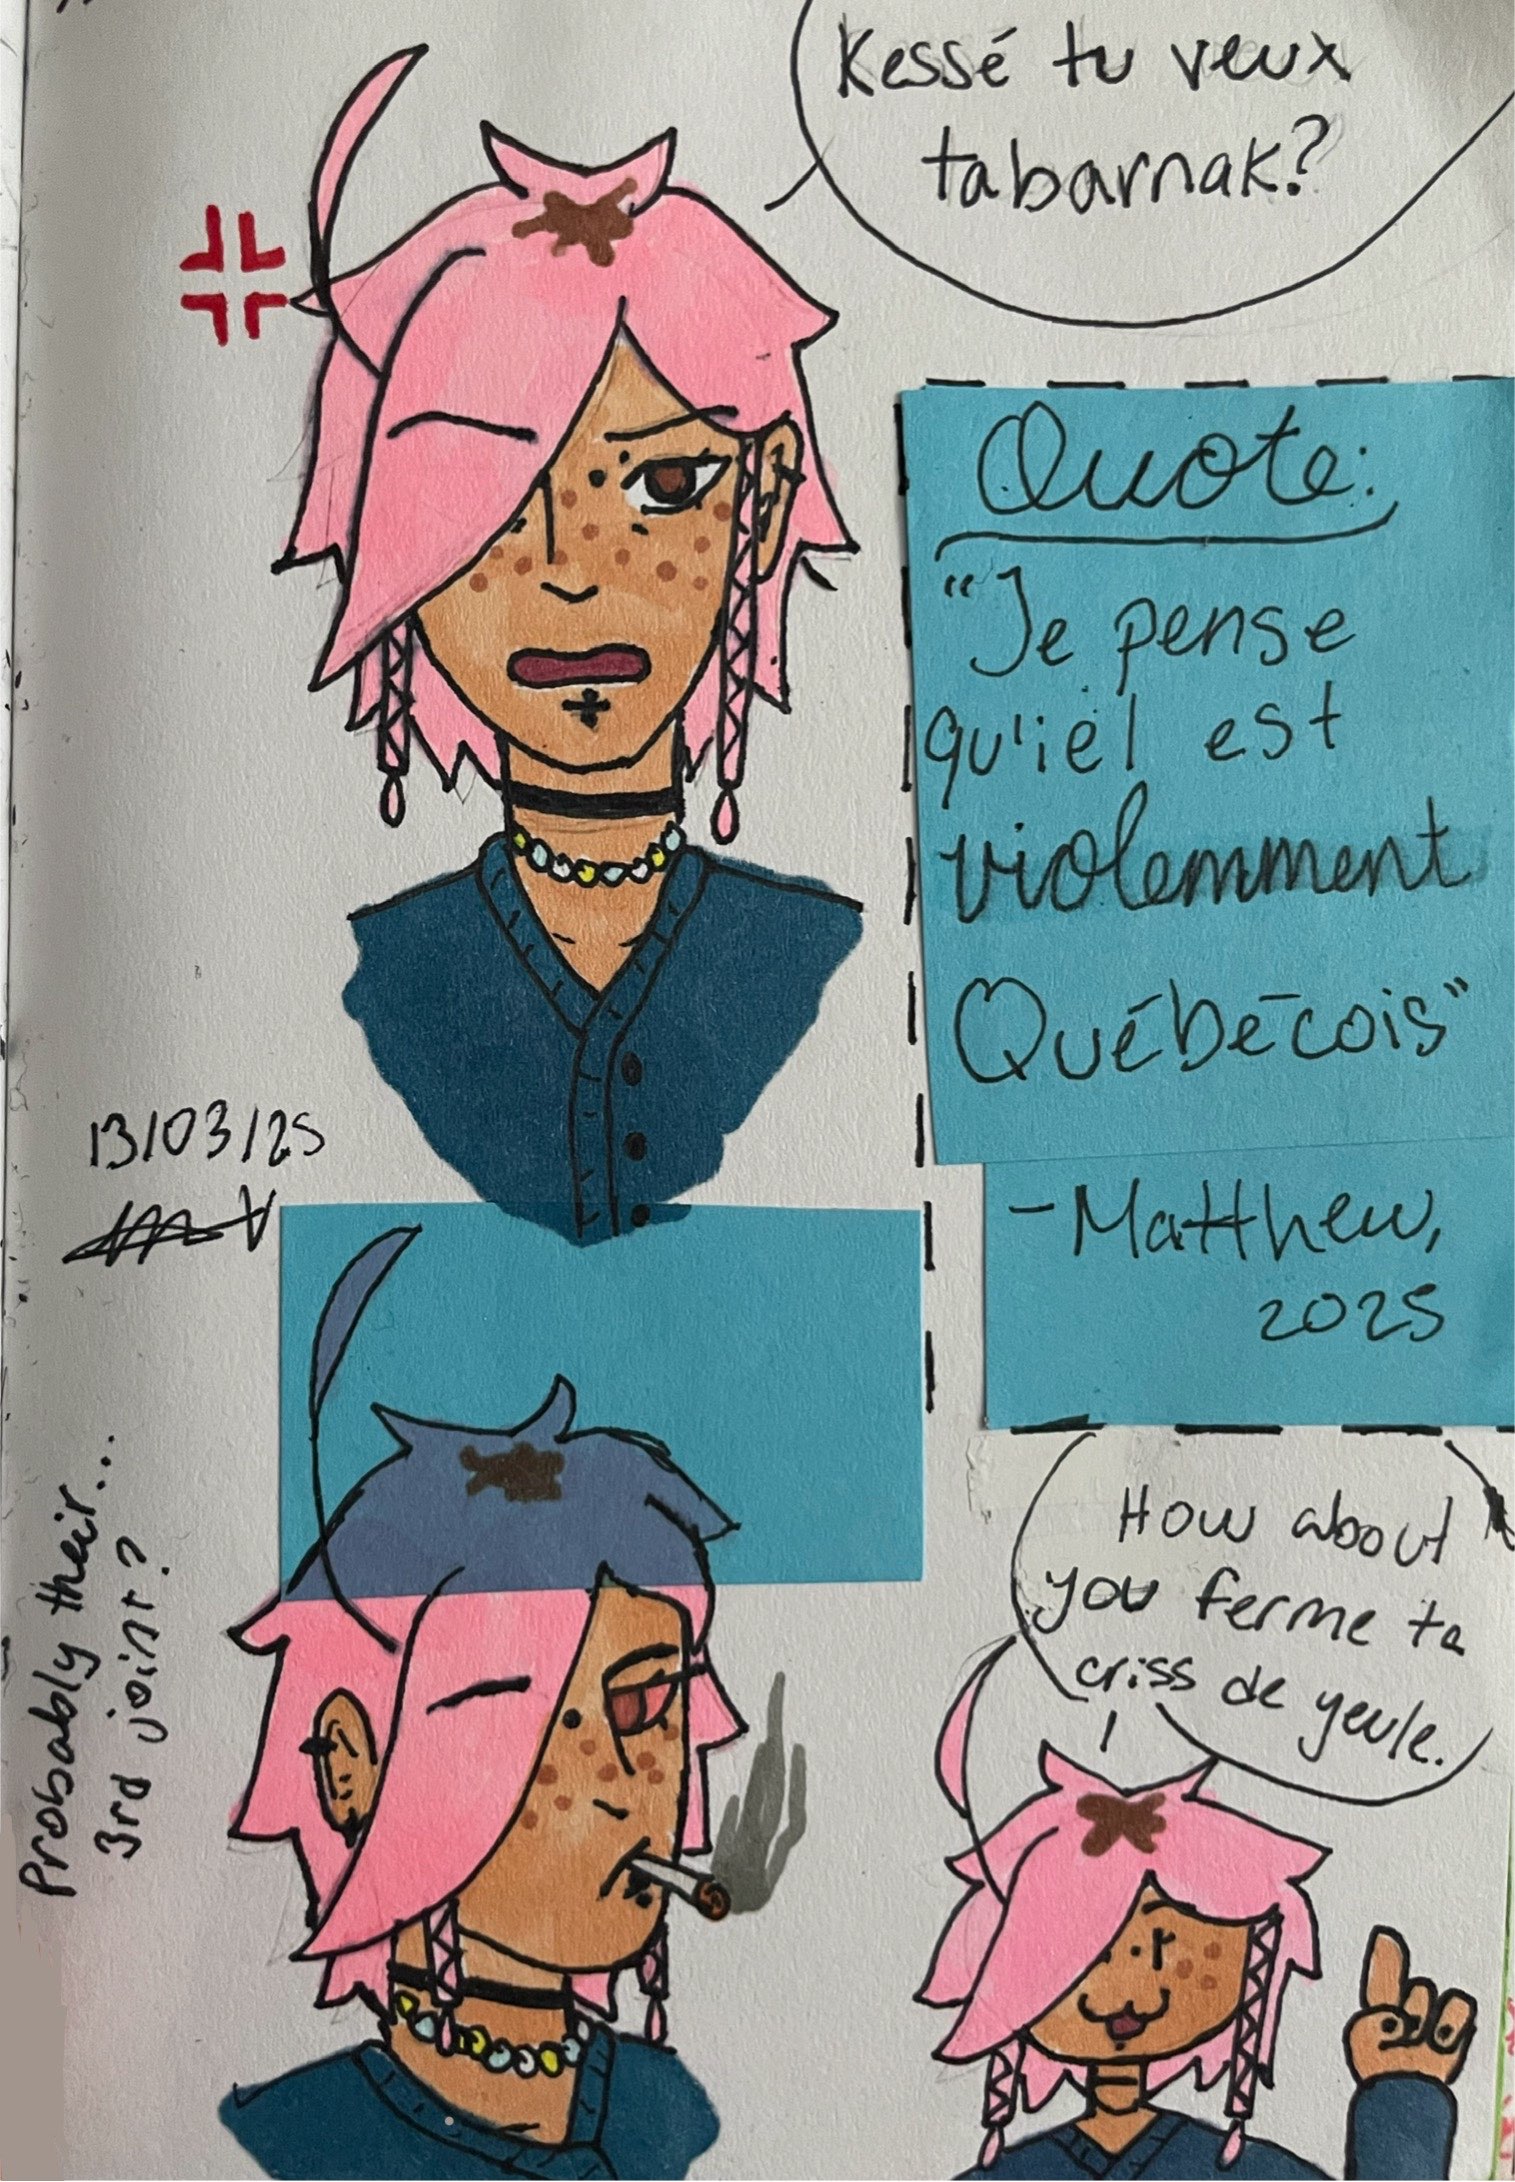 Kessé tu veux
tabarnak?
Quote:
"Je pense
qu'iel est
violemment
Québécois"
-Matthew,
2025
13/03/25
Probably their...
3rd joint?
How about
you ferme ta
criss de yeule.